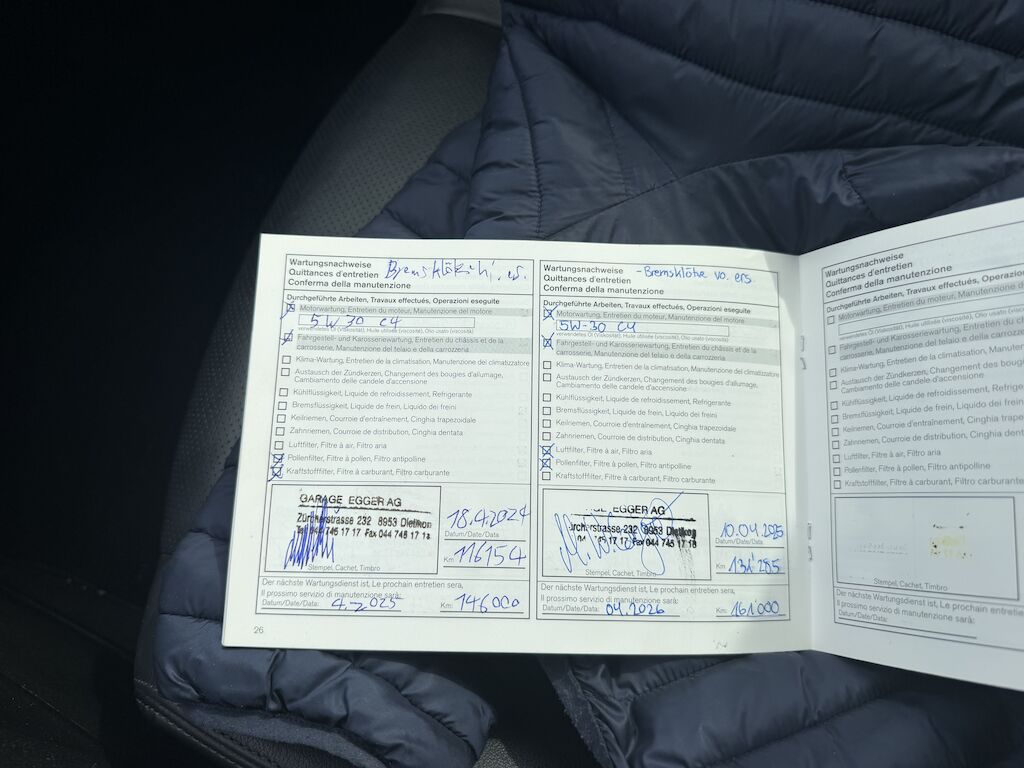 Wartungsnachweise
Quittances d'entretien
Conferma della manutenzione
Durchgeführte Arbeiten, Travaux effectués, Operazioni eseguite
Motorwartung, Entretien du moteur, Manutenzione del motore
5W 30 C4
verwendetes Öl (Viskosität), Huile utilisée (viscosité), Olio usato (viscosità)
Fahrgestell- und Karosseriewartung, Entretien du châssis et de la
carrosserie, Manutenzione del telaio e della carrozzeria
Klima-Wartung, Entretien de la climatisation, Manutenzione del climatizzatore
Austausch der Zündkerzen, Changement des bougies d'allumage,
Cambiamento delle candele d'accensione
Kühlflüssigkeit, Liquide de refroidissement, Refrigerante
Bremsflüssigkeit, Liquide de frein, Liquido dei freini
Keilriemen, Courroie d'entraînement, Cinghia trapezoidale
Zahnriemen, Courroie de distribution, Cinghia dentata
Luftfilter, Filtre à air, Filtro aria
Pollenfilter, Filtre à pollen, Filtro antipolline
Kraftstofffilter, Filtre à carburant, Filtro carburante
GARAGE EGGER AG
Zürcherstrasse 232 8953 Dietikon
Tel 044 745 17 17 Fax 044 745 17 18
Stempel, Cachet, Timbro
18.4.2024
Datum/Date/Data:
Km: 116154
Der nächste Wartungsdienst ist, Le prochain entretien sera,
Il prossimo servizio di manutenzione sarà:
Datum/Date/Data: 4.2025 Km: 146000
26
Wartungsnachweise
Quittances d'entretien
Conferma della manutenzione
- Bremsklötze vo. ers.
Durchgeführte Arbeiten, Travaux effectués, Operazioni eseguite
Motorwartung, Entretien du moteur, Manutenzione del motore
5W-30 C4
verwendetes Öl (Viskosität), Huile utilisée (viscosité), Olio usato (viscosità)
Fahrgestell- und Karosseriewartung, Entretien du châssis et de la
carrosserie, Manutenzione del telaio e della carrozzeria
Klima-Wartung, Entretien de la climatisation, Manutenzione del climatizzatore
Austausch der Zündkerzen, Changement des bougies d'allumage,
Cambiamento delle candele d'accensione
Kühlflüssigkeit, Liquide de refroidissement, Refrigerante
Bremsflüssigkeit, Liquide de frein, Liquido dei freini
Keilriemen, Courroie d'entraînement, Cinghia trapezoidale
Zahnriemen, Courroie de distribution, Cinghia dentata
Luftfilter, Filtre à air, Filtro aria
Pollenfilter, Filtre à pollen, Filtro antipolline
Kraftstofffilter, Filtre à carburant, Filtro carburante
EGGER AG
232 8953 Dietikon
17 17 Fax 044 745 17 18
Stempel, Cachet, Timbro
10.04.2025
Datum/Date/Data:
Km: 131'285
Der nächste Wartungsdienst ist, Le prochain entretien sera,
Il prossimo servizio di manutenzione sarà:
Datum/Date/Data: 04.2026 Km: 161.000
Wartungsnachweise
Quittances d'entretien
Conferma della manutenzione
Durchgeführte Arbeiten, Travaux effectués, Operazioni
Motorwartung, Entretien du moteur, Manutenzione de
verwendetes Öl (Viskosität), Huile utilisée (viscosité), Olio usato
Fahrgestell- und Karosseriewartung, Entretien du
carrosserie, Manutenzione del telaio e della carro
Klima-Wartung, Entretien de la climatisation, Manute
Austausch der Zündkerzen, Changement des boug
Cambiamento delle candele d'accensione
Kühlflüssigkeit, Liquide de refroidissement, Refrig
Bremsflüssigkeit, Liquide de frein, Liquido dei frein
Keilriemen, Courroie d'entraînement, Cinghia trape
Zahnriemen, Courroie de distribution, Cinghia den
Luftfilter, Filtre à air, Filtro aria
Pollenfilter, Filtre à pollen, Filtro antipolline
Kraftstofffilter, Filtre à carburant, Filtro carburante
Stempel, Cachet, Timbro
Der nächste Wartungsdienst ist, Le prochain entretie
Il prossimo servizio di manutenzione sarà:
Datum/Date/Data: